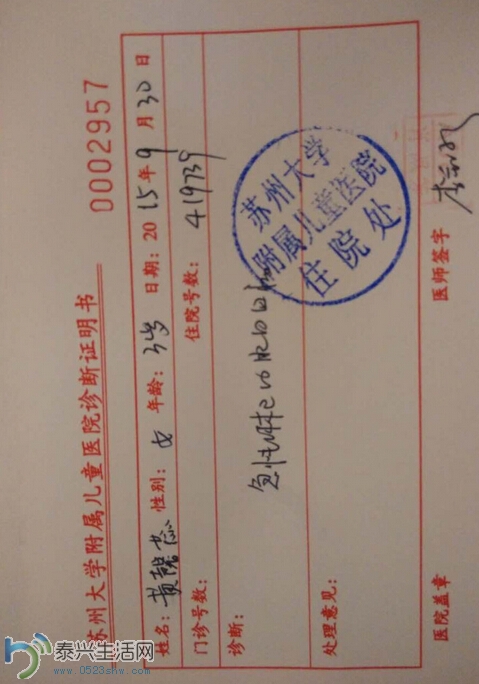 苏州大学附属儿童医院诊断证明书
0002957
姓名: 黄懿蕊 性别: 女 年龄: 3岁 日期: 2015年9月30日
门诊号数: 住院号数: 419739
诊断:
急性淋巴细胞白血病
苏州大学
附属儿童医院
住院处
处理意见:
医院盖章 医师签字
泰兴生活网
www.0523shw.com